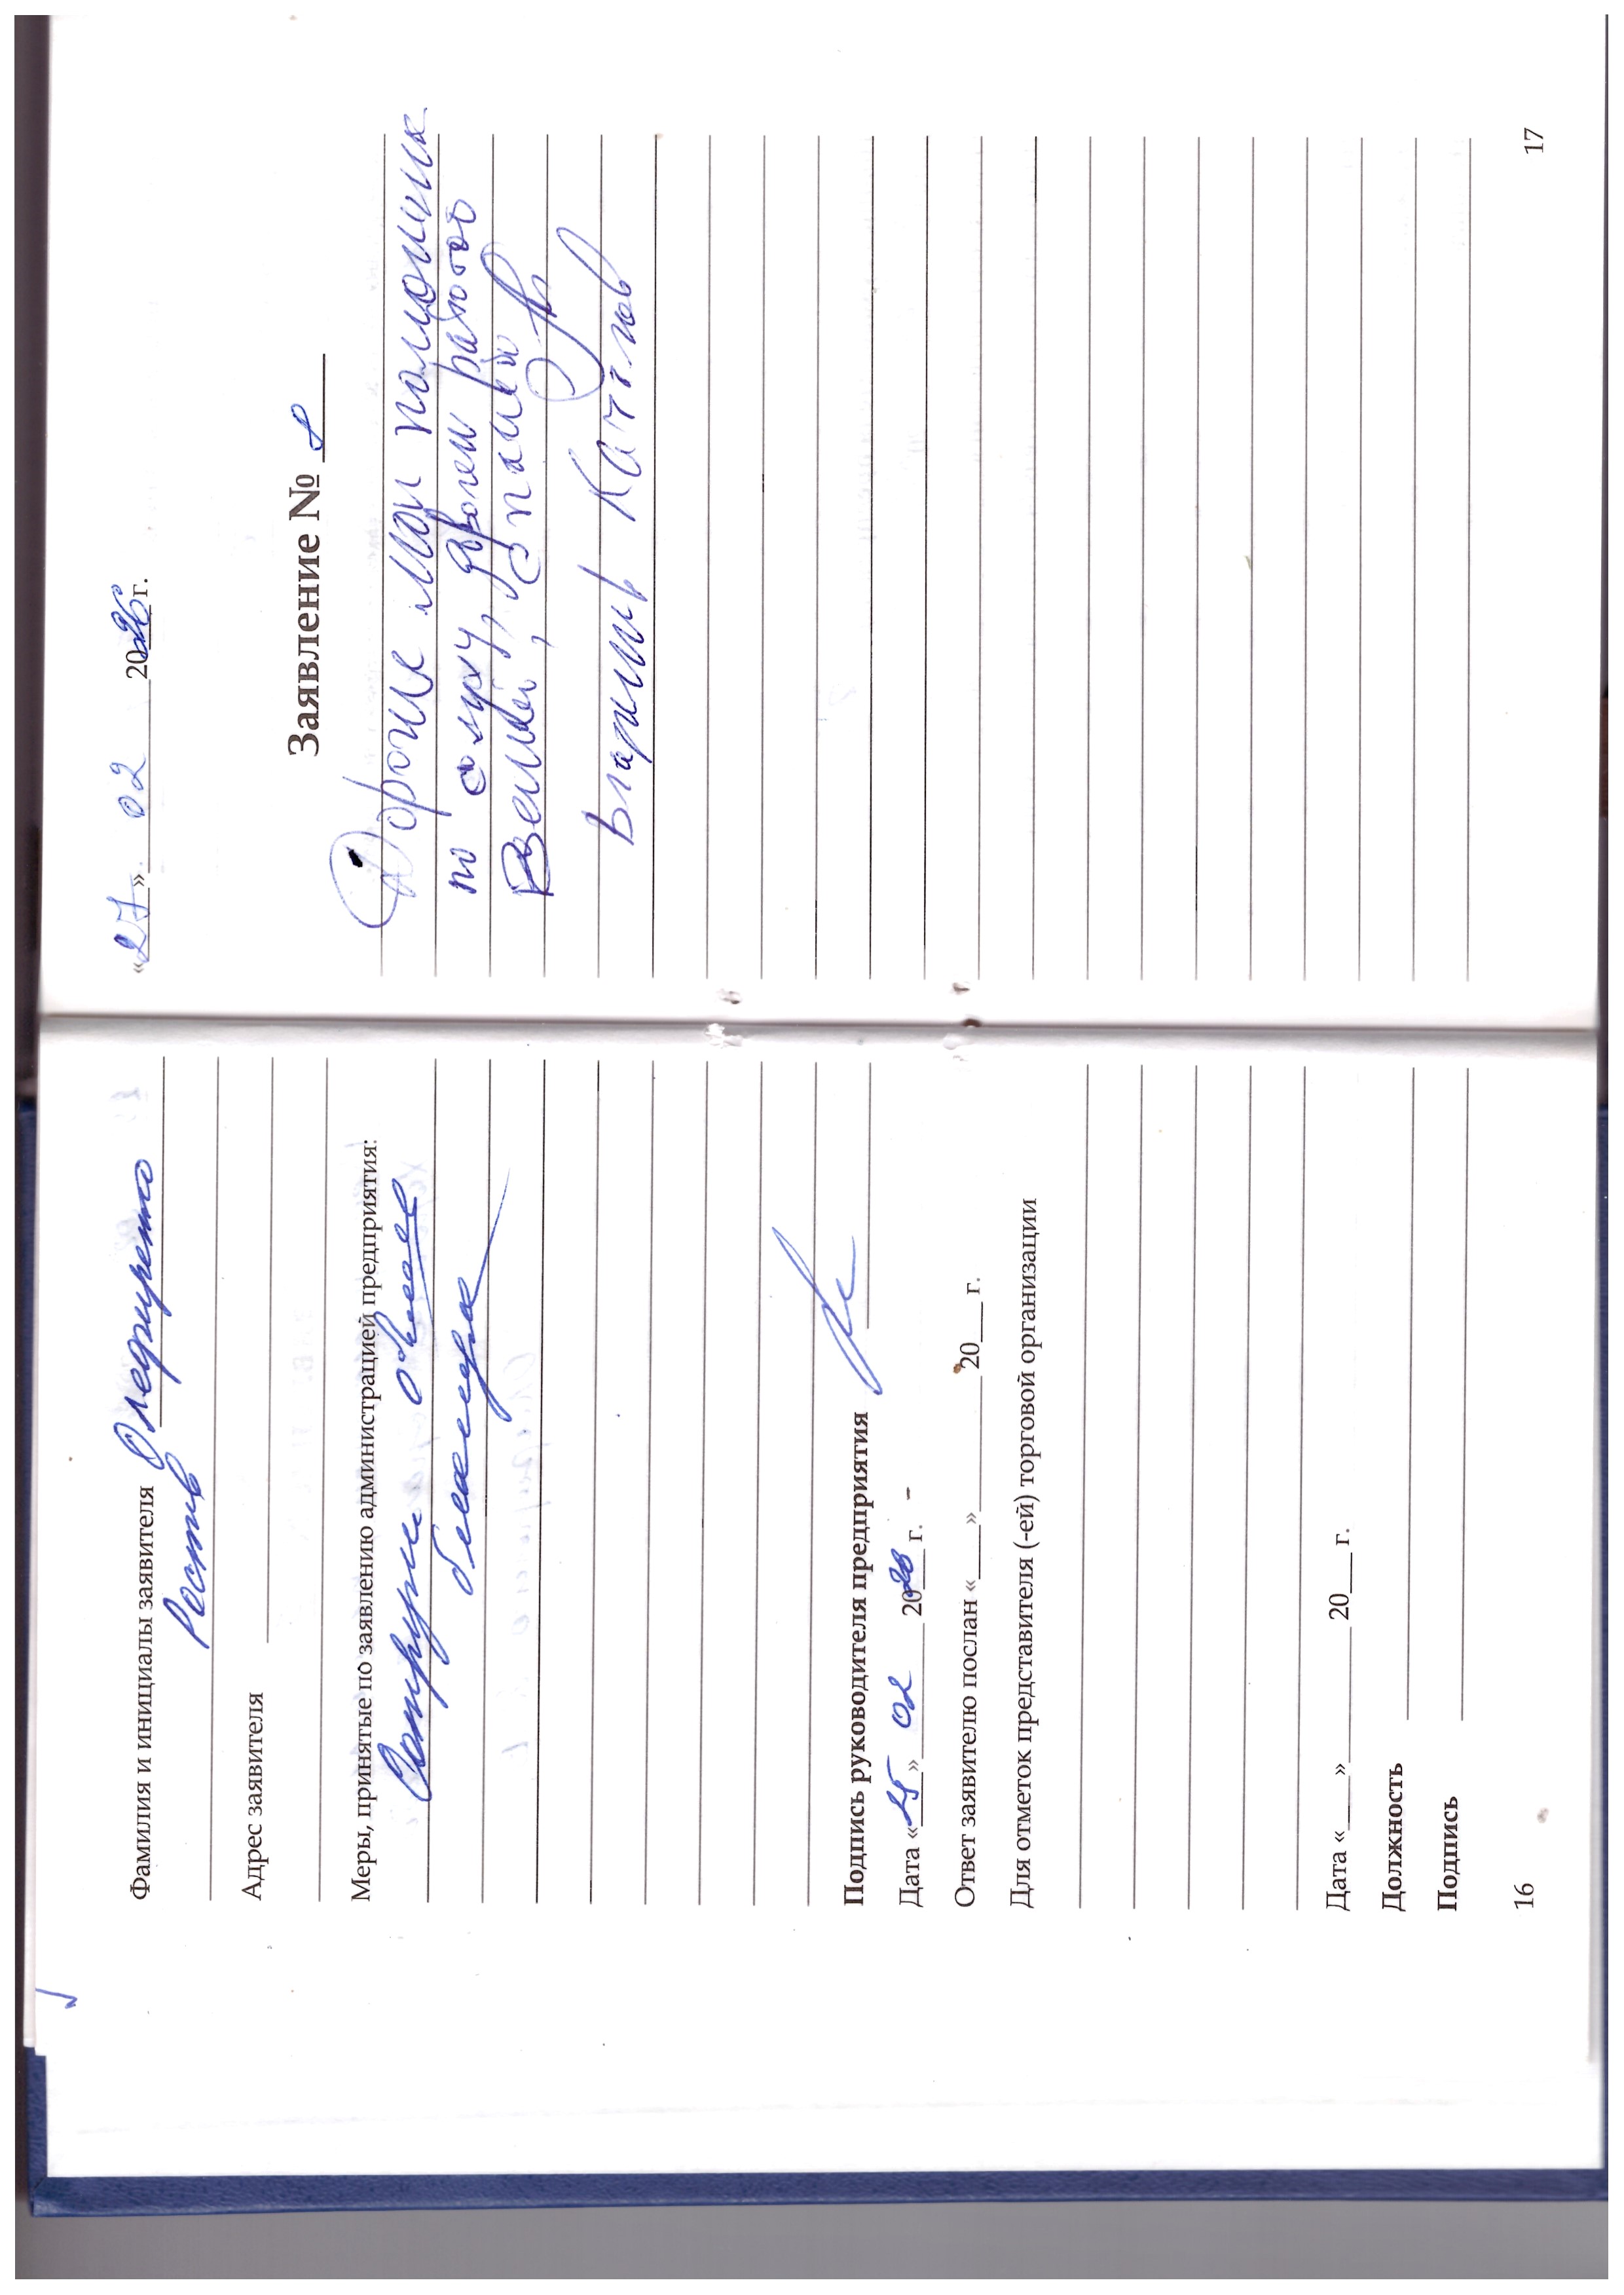 Фамилия и инициалы заявителя Олефиренко
Ростив
Адрес заявителя
Меры, принятые по заявлению администрацией предприятия:
объявлена
Подпись руководителя предприятия
Дата «25» 02 2026 г.
Ответ заявителю послан «___»________ 20___ г.
Для отметок представителя (-ей) торговой организации
Дата «___»________ 20___ г.
Должность
Подпись
16
«27» 02 2026 г.
Заявление № 8
Дорогие мои помощники
по слуху, доволен работой
Вашей, Спасибо
Владимир
17